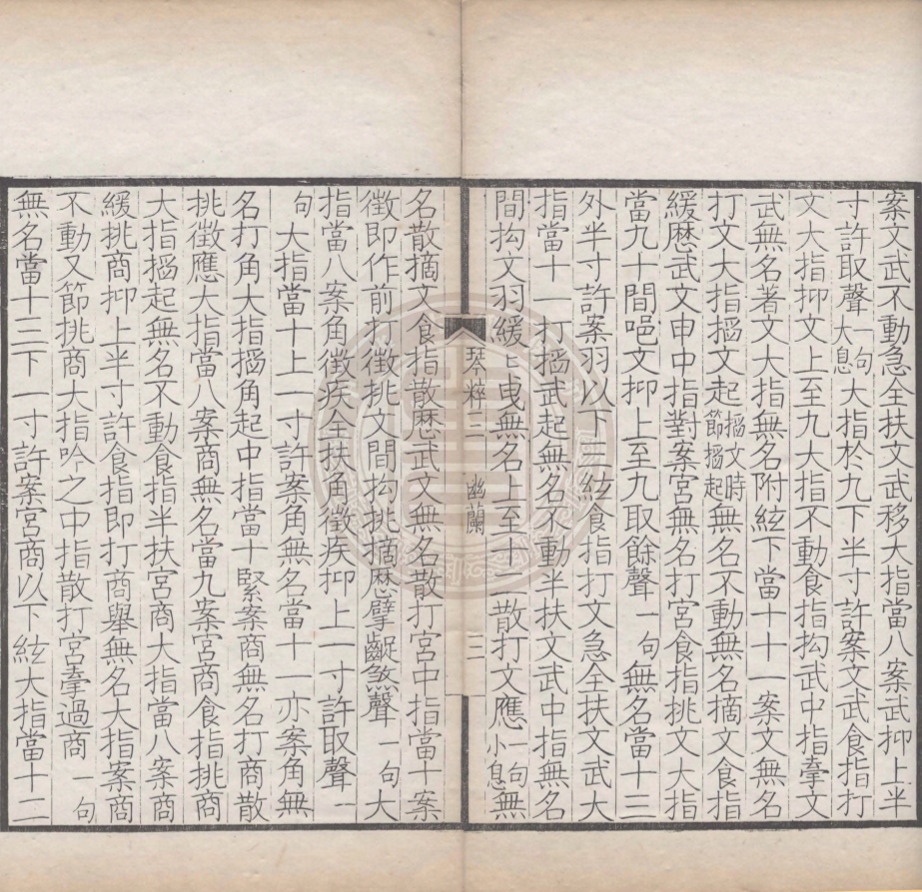 案文武不動急全扶文武移大指當八案武抑上半
寸許取聲一句大息大指於九下半寸許案文武食指打
文大指抑文上至九大指不動食指抅武中指𢳆文
武無名著文大指無名附絃下當十十一案文無名
打文大指搯文起搯文時節搯起無名不動無名摘文食指
緩歷武文申中指對案宮無名打宮食指挑文大指
當九十間吧文抑上至九取餘聲一句無名當十三
外半寸許案羽以下三絃食指打文急全扶文武大
指當十一打搯武起無名不動半扶文武中指無名
間抅文羽緩乜曵無名上至十二散打文應一句小息無
琴粹二 幽蘭 二
名散摘文食指散歷武文無名散打宮中指當十案
徵即作前打徵挑文間抅挑摘歷擘齪煞聲一句大
指當八案角徵疾全扶角徵疾抑上一寸許取聲一
句大指當十上一寸許案角無名當十一亦案角無
名打角大指搯角起中指當十緊案商無名打商散
挑徵應大指當八案商無名當九案宮商食指挑商
大指搯起無名不動食指半扶宮商大指當八案商
緩挑商抑上半寸許食指即打商舉無名大指案商
不動又節挑商大指吟之中指散打宮𢳆過商一句
無名當十三下一寸許案宮商以下絃大指當十二